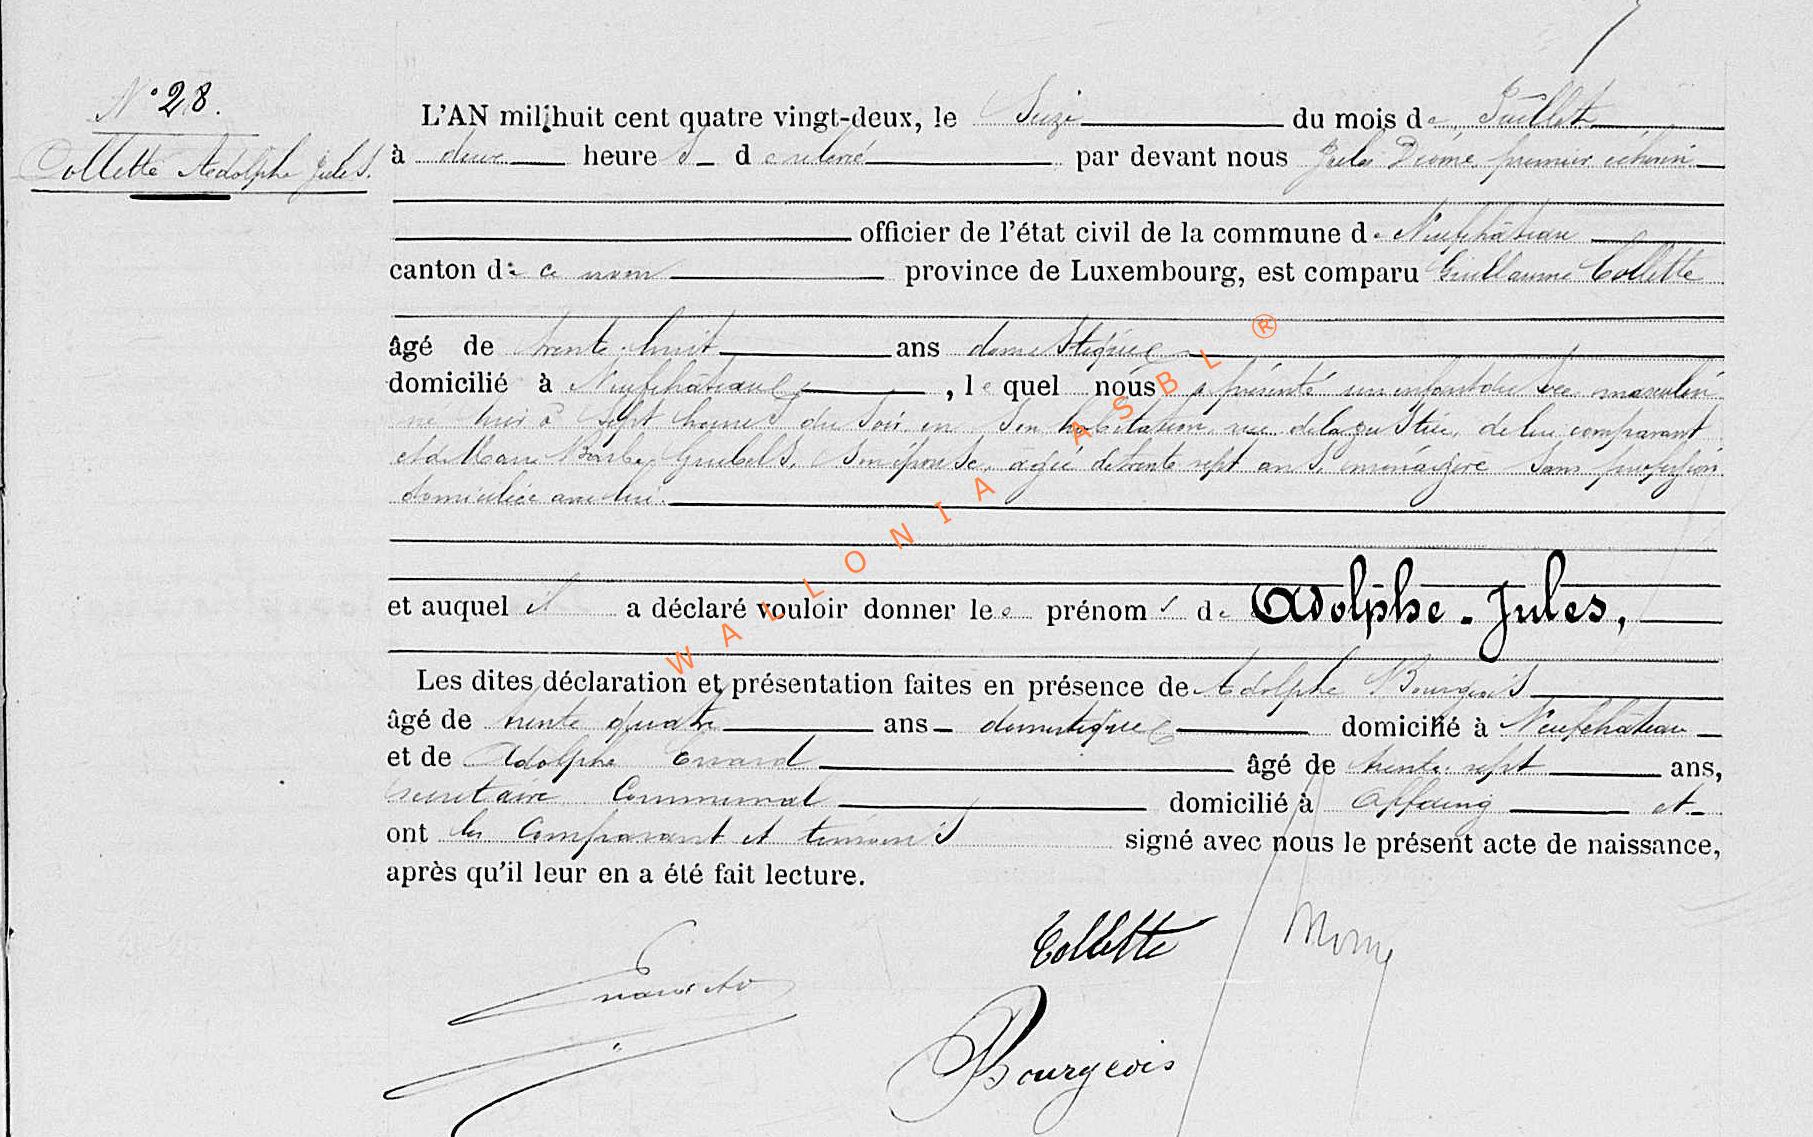 N° 28.
Collette Adolphe Jules.
L'AN mil huit cent quatre vingt-deux, le Seize du mois de Juillet
à deux heures de relevé par devant nous Jules premier échevin
officier de l'état civil de la commune de Neufchâteau
canton de ce nom province de Luxembourg, est comparu Guillaume Collette
âgé de trente-huit ans domestique
domicilié à Neufchâteau, lequel nous a présenté un enfant du sexe masculin
né hier à sept heures du soir en son habitation rue de la Justice, de lui comparant
et de Marie Barbe Gubels, son épouse, âgée de trente sept ans, ménagère sans profession
domiciliée avec lui.
et auquel il a déclaré vouloir donner le prénoms de Adolphe-Jules,
Les dites déclaration et présentation faites en présence de Adolphe Bourgeois
âgé de trente quatre ans domestique domicilié à Neufchâteau
et de Adolphe Evrard âgé de trente-sept ans,
secrétaire Communal domicilié à Offaing et
ont les Comparant et témoins signé avec nous le présent acte de naissance,
après qu'il leur en a été fait lecture.
Collette
Evrard Ad
Bourgeois
WALLONIA ASBL ®